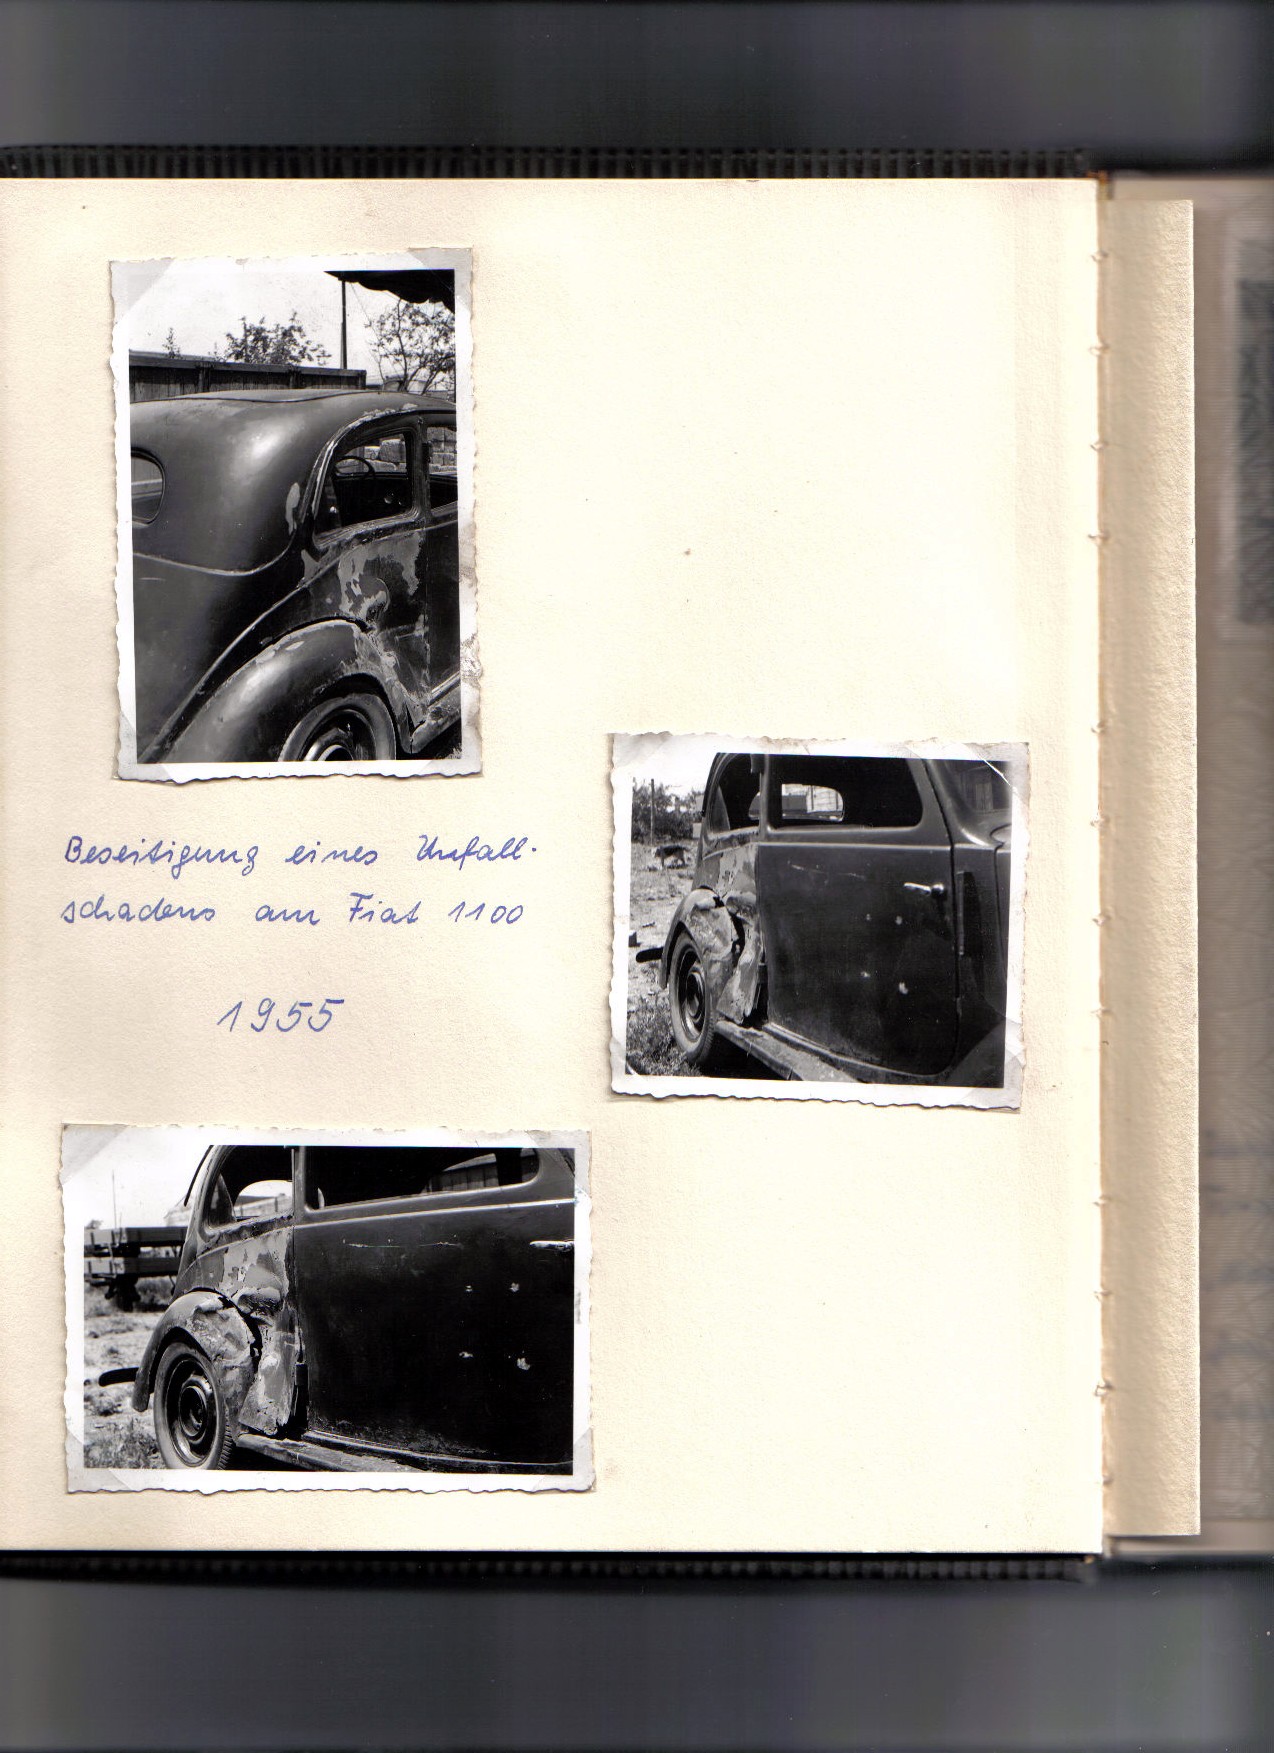 Beseitigung eines Unfall-
schadens am Fiat 1100
1955